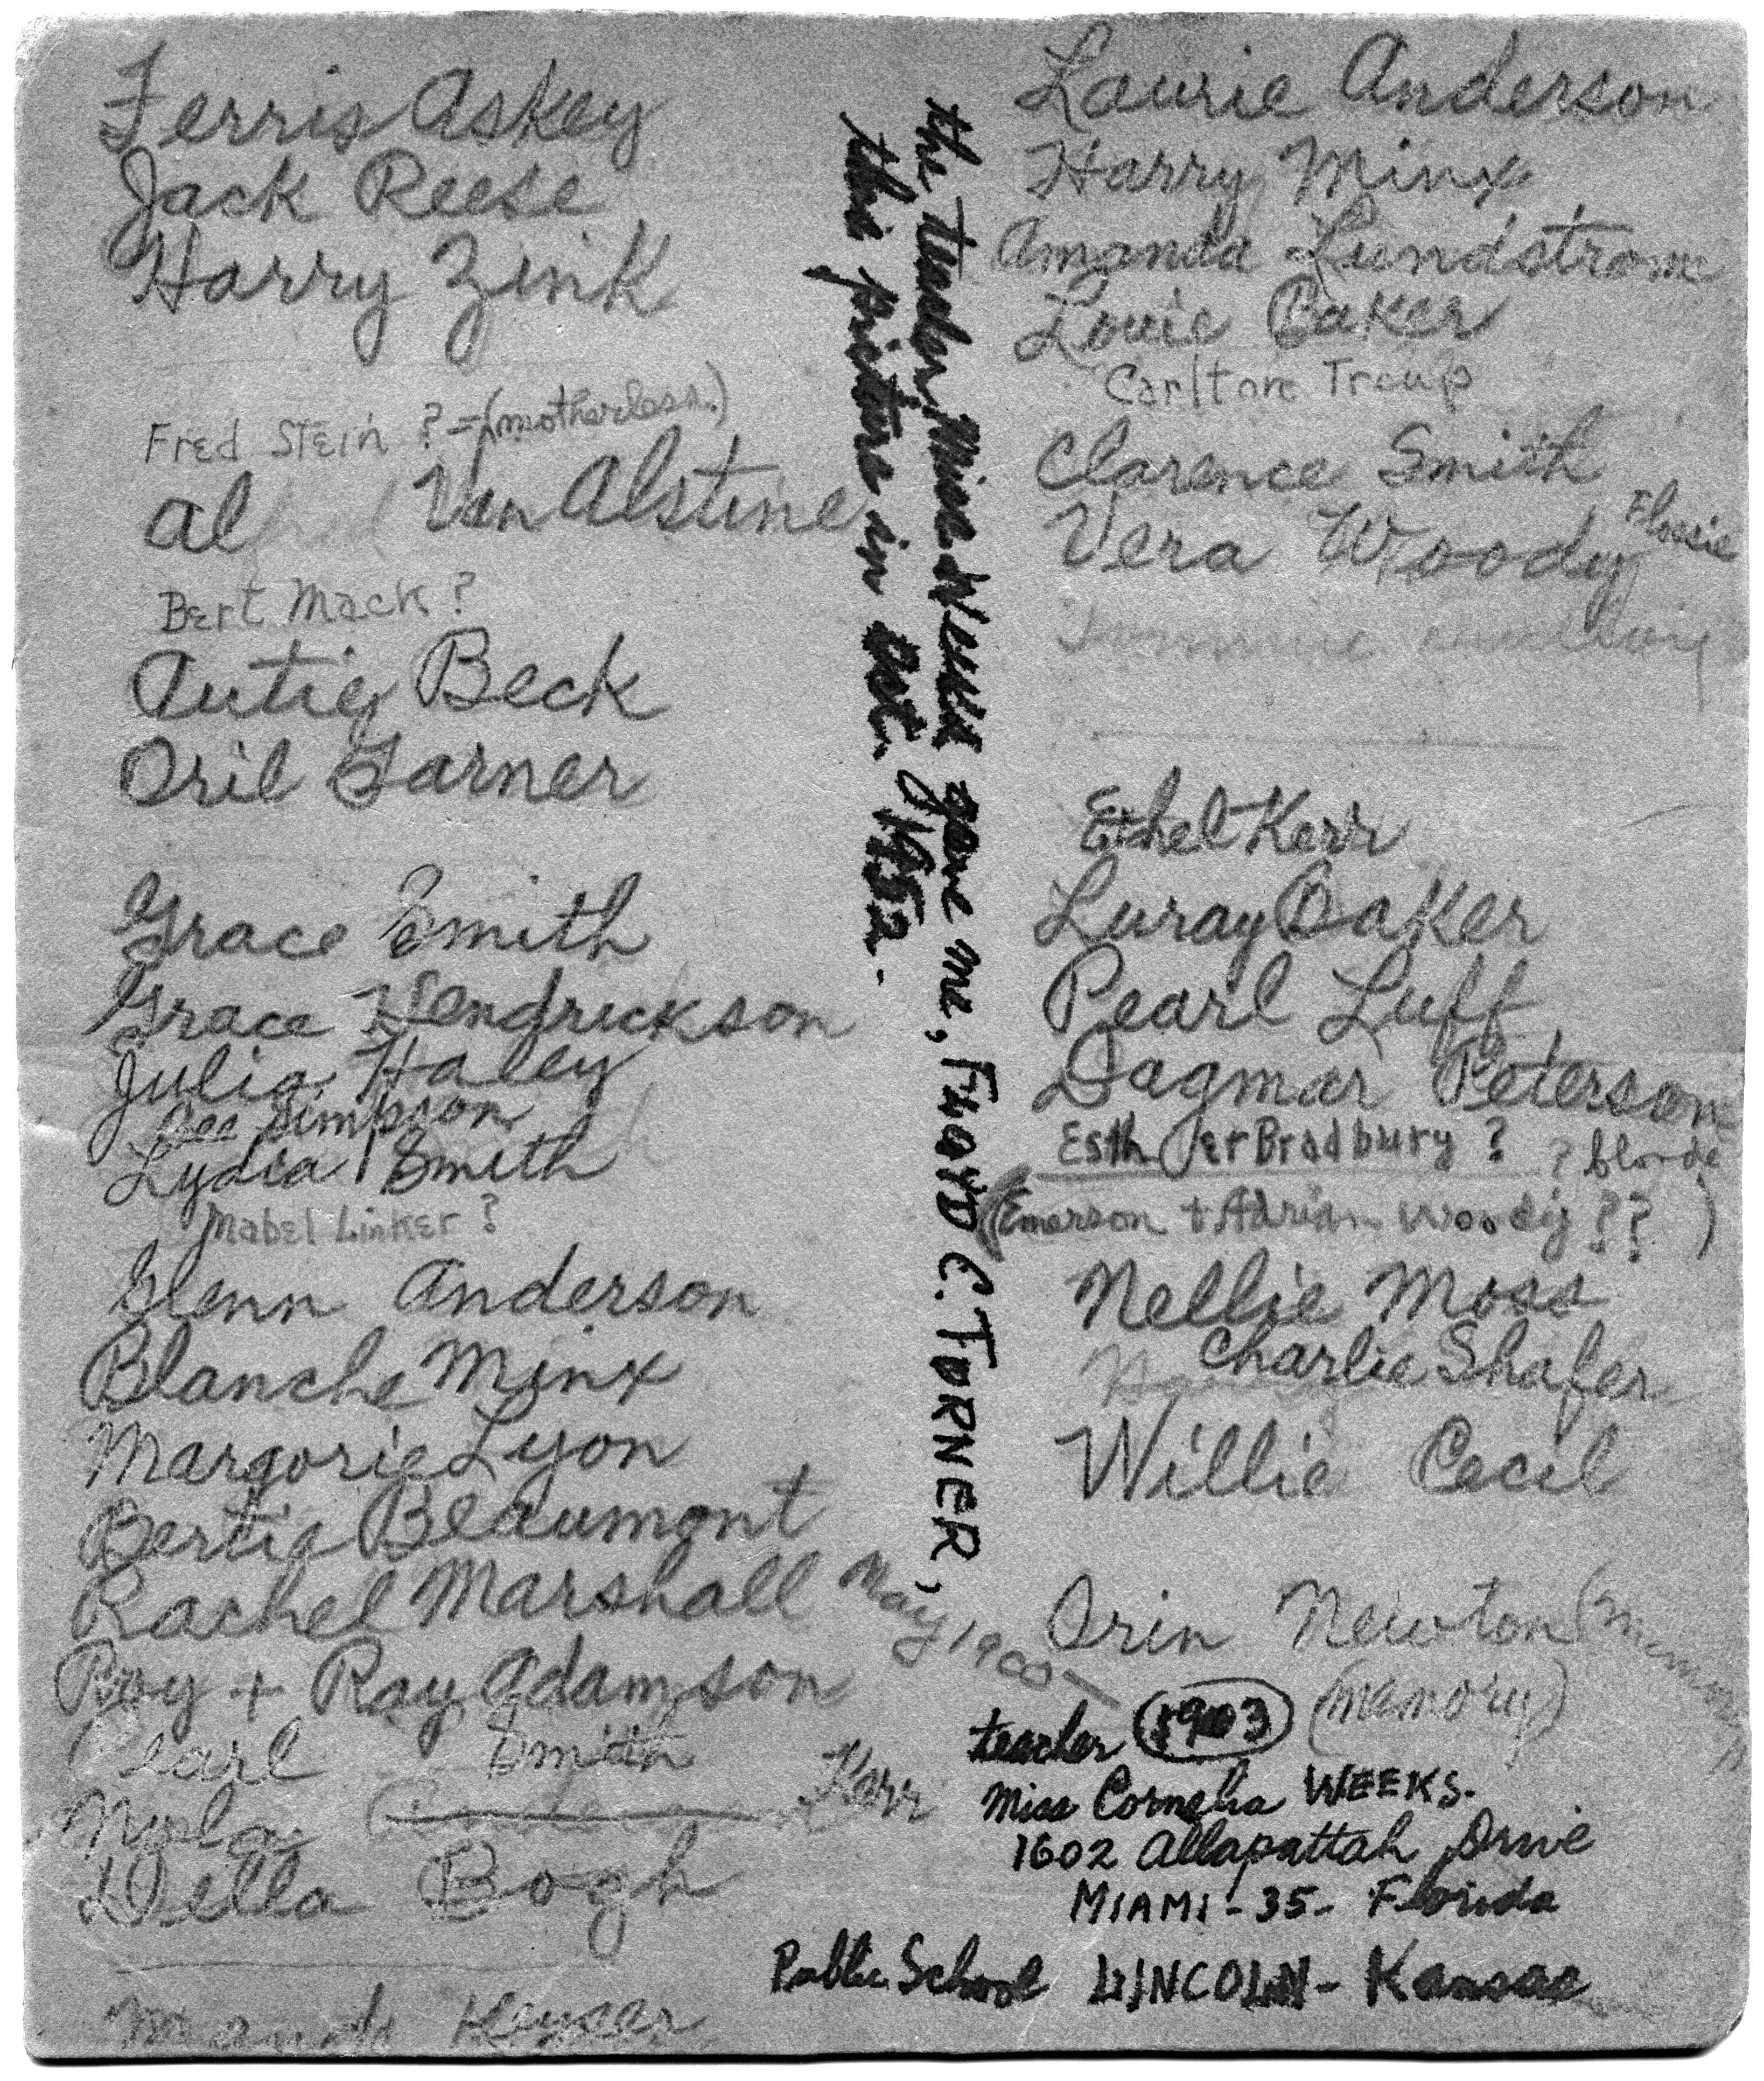 Ferris Askey
Jack Reese
Harry Zink
Fred Stein ? = (motherless.)
Al Van Alstine
Bert Mack ?
Autie Beck
Oril Garner
Grace Smith
Grace Hendrickson
Julia Haley
Lee Simpson
Lydia Smith
Mabel Linker ?
Glenn Anderson
Blanche Minx
Margorie Lyon
Bertie Beaumont
Rachel Marshall
Roy + Ray Adamson
Pearl Smith
Nola Kerr
Della Bogh
Keyser
the teacher, Miss Weeks gave me, FLOYD C. TURNER,
this picture in Oct. 1952.
May 1900
Laurie Anderson
Harry Minx
Amanda Lundstrom
Louie Baker
Carlton Troup
Clarence Smith
Vera Woody Flossie
Ethel Kerr
Luray Baker
Pearl Luff
Dagmar Peterson
Esther Bradbury ? ? blonde
(Emerson + Adrian Woody ?? )
Nellie Moss
Charlie Shafer
Willie Cecil
Orin Newton (Memory)
(memory)
teacher 1903
Miss Cornelia WEEKS.
1602 Allapattah Drive
MIAMI - 35 - Florida
Public School LINCOLN - Kansas